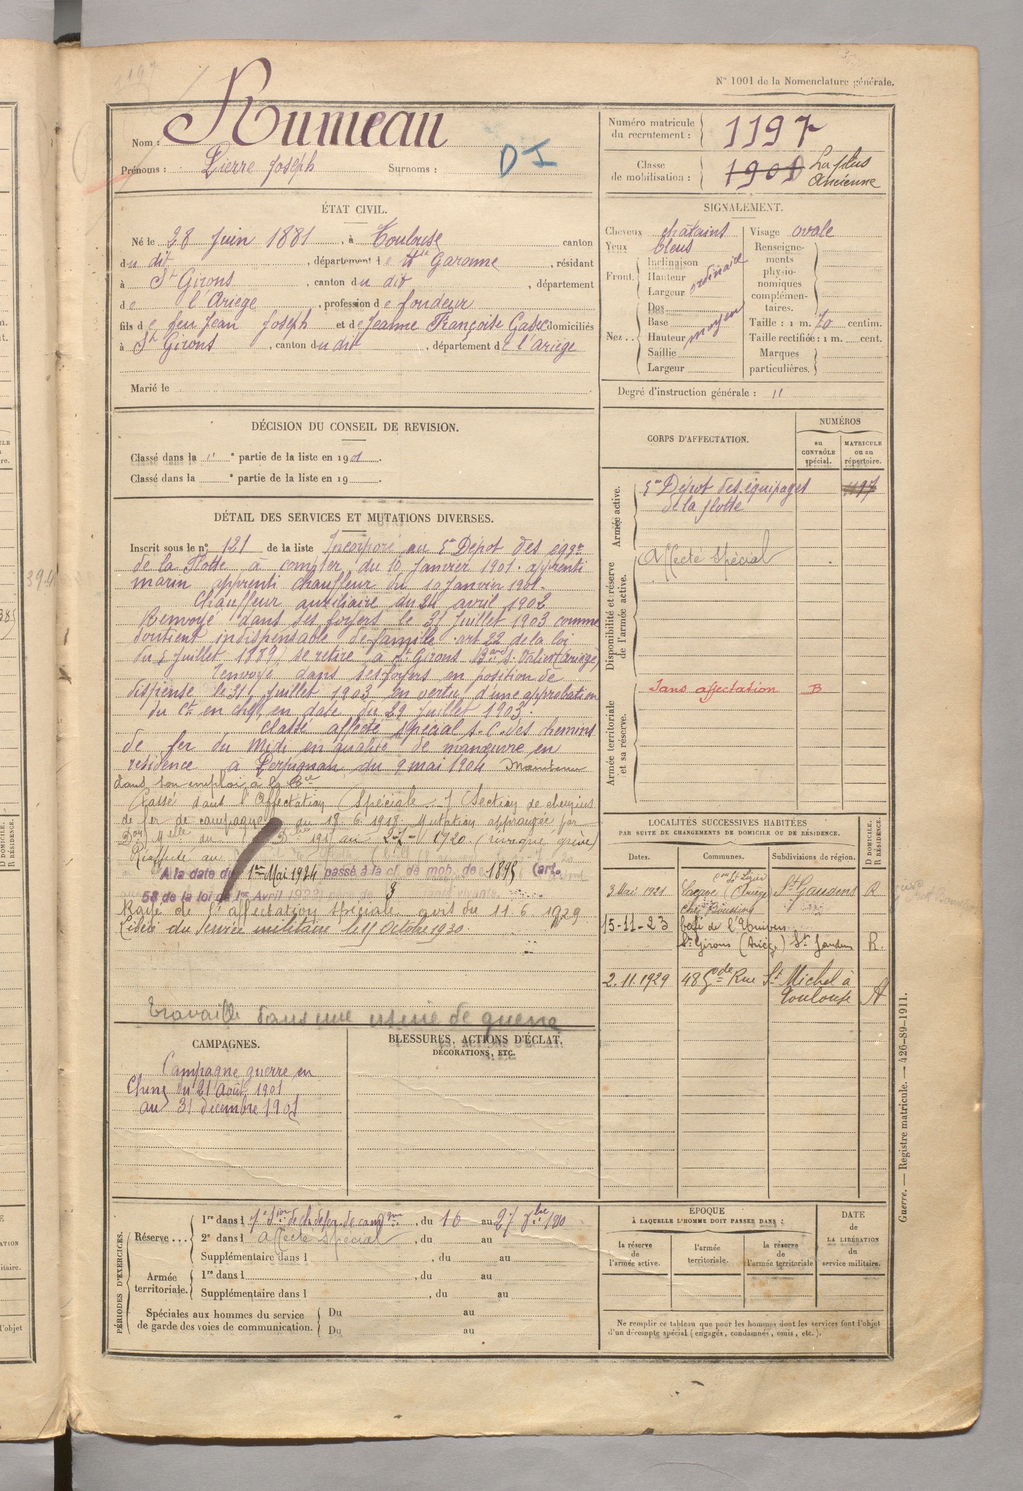 N° 1001 de la Nomenclature générale.
Nom : Rumeau
Prénoms : Pierre Joseph Surnoms :
DI
Numéro matricule du recrutement : 1197
Classe de mobilisation : 1901 La plus Ancienne
ÉTAT CIVIL.
Né le 28 Juin 1881, à Toulouse canton
du dit, département de Hte Garonne, résidant
à St Girons, canton du dit, département
de l'Ariège, profession de fondeur
fils de feu Jean Joseph et de Jeanne Françoise Gasc domiciliés
à St Girons, canton du dit, département de l'Ariège
Marié le
SIGNALEMENT.
Cheveux châtains
Yeux bleus
Front. Inclinaison
Hauteur
Largeur
ordinaire
Nez. Dos
Base
Hauteur
Saillie
Largeur
moyen
Visage ovale
Renseignements physionomiques complémentaires.
Taille : 1 m. 70 centim.
Taille rectifiée : 1 m. cent.
Marques particulières.
Degré d'instruction générale : "
DÉCISION DU CONSEIL DE REVISION.
Classé dans la " e partie de la liste en 1901.
Classé dans la e partie de la liste en 19
CORPS D'AFFECTATION.
NUMÉROS
au CONTRÔLE spécial.
MATRICULE ou au répertoire.
Armée active.
5me Dépot des équipages
de la flotte
1197
Disponibilité et réserve de l'armée active.
Affecté Spécial
Armée territoriale et sa réserve.
Sans affectation B
DÉTAIL DES SERVICES ET MUTATIONS DIVERSES.
Inscrit sous le n° 121 de la liste Incorporé au 5e Dépot des eqges
de la Flotte à compter du 10 Janvier 1901. apprenti
marin, apprenti chauffeur du 10 Janvier 1901.
Chauffeur auxiliaire du 24 avril 1902
Renvoyé dans ses foyers le 31 Juillet 1903 comme
soutient indispensable de famille art 22 de la loi
du 15 Juillet 1889, se retire à St Girons Bard St Valier (Ariège)
Renvoyé dans ses foyers en position de
dispense le 31 Juillet 1903 en vertu d'une approbation
du Ct en chef, en date du 29 Juillet 1903.
Classé affecté spécial s. C. des chemins
de fer du Midi en qualité de manœuvre en
résidence à Perpignan du 9 mai 1904 Maintenu
dans son emploi à la
Passé dans l'Affectation Spéciale Section de chemins
de fer de campagne du 18.6.1918. Mutation approuvée par
Réaffecté au
A la date du 1er Mai 1924 passé à la cl. de mob. de 1895 (art.
58 de la loi du 1er Avril 1923) père de 3
Rayé de l'affectation spéciale avis du 11.6.1929
Libéré du service militaire le 15 Octobre 1930
Travaille dans une usine de guerre
LOCALITÉS SUCCESSIVES HABITÉES
PAR SUITE DE CHANGEMENTS DE DOMICILE OU DE RÉSIDENCE.
Dates. Communes. Subdivisions de région. D DOMICILE. R RÉSIDENCE.
3 Mai 1921 (Ariège) St Gaudens R
15-11-23 Café de l'Univers
St Girons (Ariège) St Gaudens R.
2.11.1929 48 Gde Rue St Michel à
Toulouse
CAMPAGNES.
Campagne guerre en
Chine du 21 Août 1901
au 31 décembre 1901
BLESSURES, ACTIONS D'ÉCLAT,
DÉCORATIONS, ETC.
PÉRIODES D'EXERCICES.
Réserve ... 1re dans l , du 16 au 27
2e dans l Affecté spécial, du au
Supplémentaire dans l , du au
Armée territoriale. 1re dans l , du au
Supplémentaire dans l , du au
Spéciales aux hommes du service
de garde des voies de communication. Du au
Du au
ÉPOQUE
À LAQUELLE L'HOMME DOIT PASSER DANS :
la réserve de l'armée active.
l'armée territoriale.
la réserve de l'armée territoriale.
DATE de LA LIBÉRATION du service militaire.
Ne remplir ce tableau que pour les hommes dont les services font l'objet
d'un décompte spécial (engagés, condamnés, omis, etc.).
Guerre. — Registre matricule. — 426-89-1911.